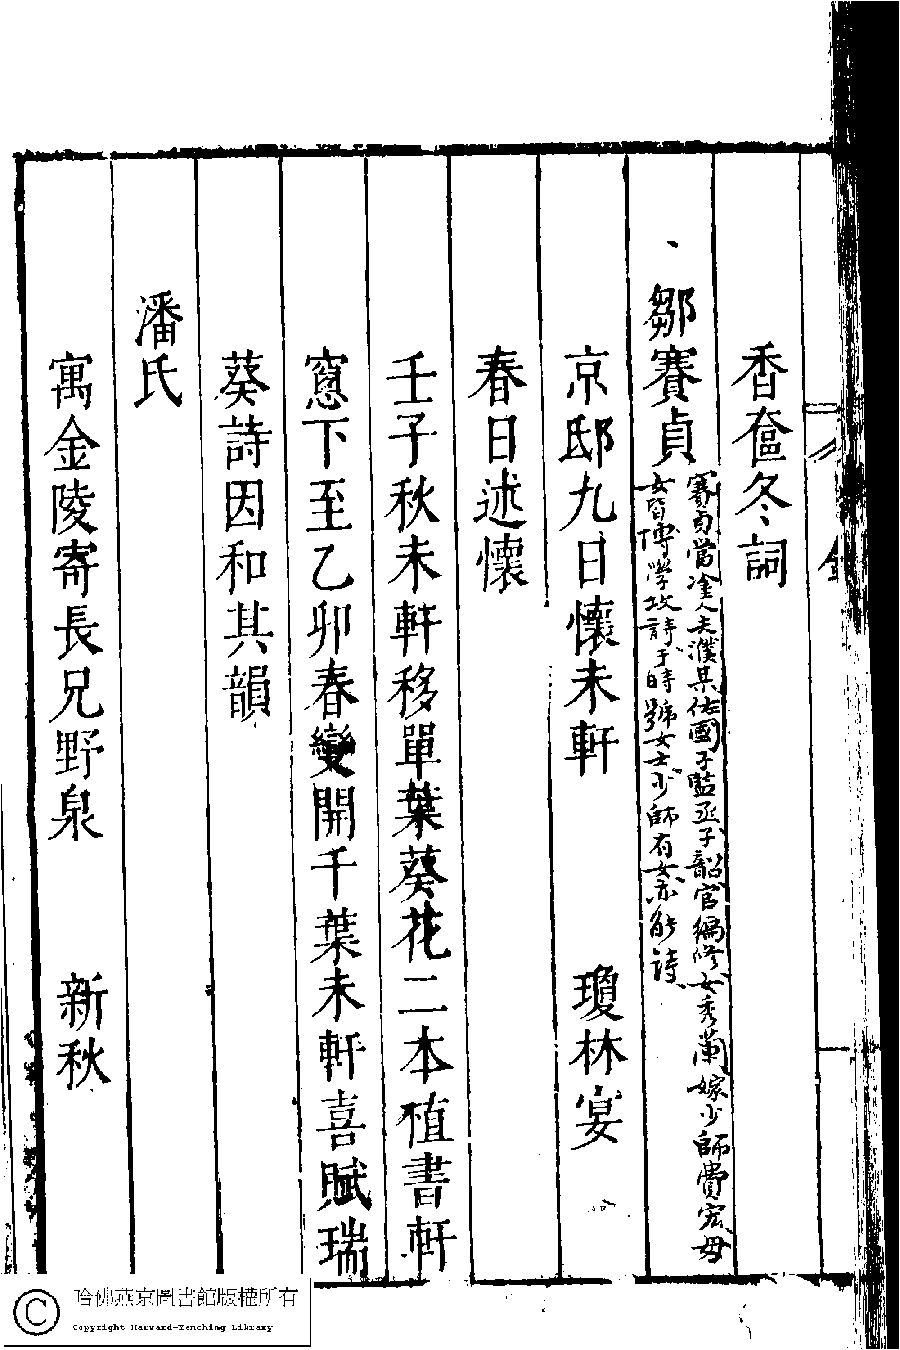 香奩冬詞
鄒賽貞
賽貞當塗人夫濮某仕國子監丞子韶官編修女秀蘭嫁少師費宏母
女皆博學攻詩于時號女士少師有女亦能詩
京邸九日懷未軒 瓊林宴
春日述懷
壬子秋未軒移單葉葵花二本植書軒
窻下至乙卯春變開千葉未軒喜賦瑞
葵詩因和其韻
潘氏
寓金陵寄長兄野泉 新秋
哈佛燕京圖書館版權所有
Copyright Harvard-Yenching Library